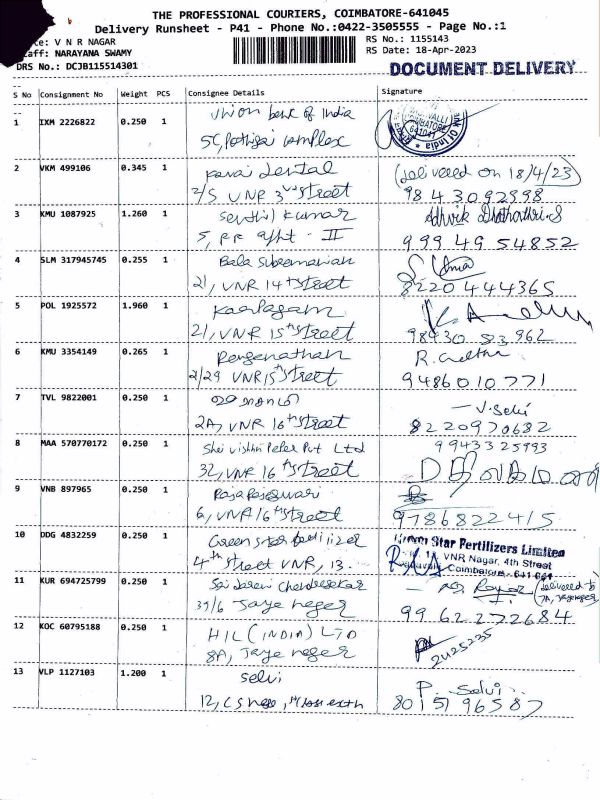 THE PROFESSIONAL COURIERS, COIMBATORE-641045
Delivery Runsheet - P41 - Phone No.:0422-3505555 - Page No.:1
V N R NAGAR
RS No.: 1155143
NARAYANA SWAMY
RS Date: 18-Apr-2023
DRS No.: DCJB115514301
DOCUMENT DELIVERY
S No Consignment No Weight PCS Consignee Details Signature
1 IXM 2226822 0.250 1 Union bank of India
complex
2 VKM 499106 0.345 1 dental (delivered on 18/4/23)
2/5 VNR 3rd street 98430 92998
3 KMU 1087925 1.260 1 Senthil kumar
5, - II 99949 54852
4 SLM 317945745 0.255 1 Bala Subramaniah
21, VNR 14th street 8220444365
5 POL 1925572 1.960 1 Karpagam
21, VNR 15th street 98430 83962
6 KMU 3354149 0.265 1 Renganathan
2/29 VNR 15th street 9486010771
7 TVL 9822001 0.250 1 - V. Selvi
2A, VNR 16th street 8220970682
8 MAA 570770172 0.250 1 Shri Vishnu Paper Pvt Ltd 9943325993
32, VNR 16th street
9 VNB 897965 0.250 1 Rajarajeswari
6, VNR 16th street 9786822415
10 DDG 4832259 0.250 1 Green star Fertilizer Star Fertilizers Limited
4th street VNR, 13. VNR Nagar, 4th Street
Coimbatore
11 KUR 694725799 0.250 1 Sai (delivered to
39/6 Jaya nagar 9962272684
12 KOC 60795188 0.250 1 HIL (INDIA) LTD
8A, Jaya nagar 2425235
13 VLP 1127103 1.200 1 Selvi P. Selvi
12, 80151 96587